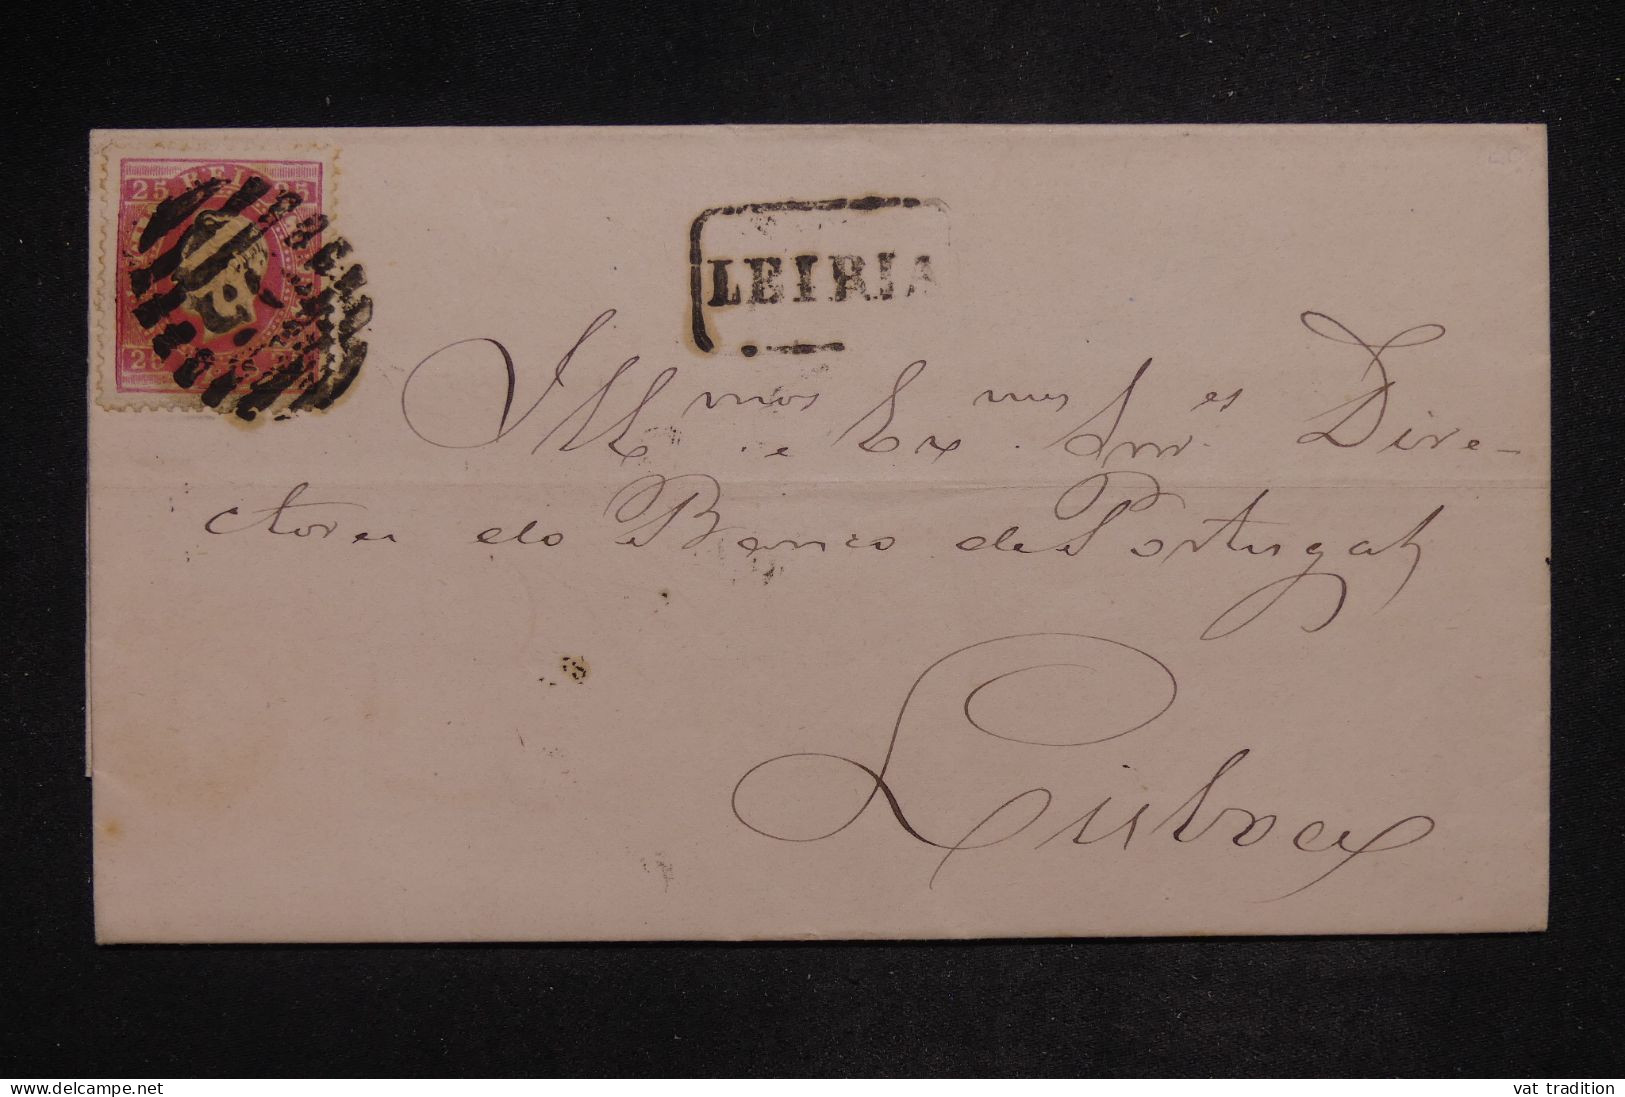 25 REIS 25
25
LEIRIA
Ill mos e Ex mos Snr es Dire-
ctores do Banco de Portugal
Lisboa
delcampe.net
vat tradition